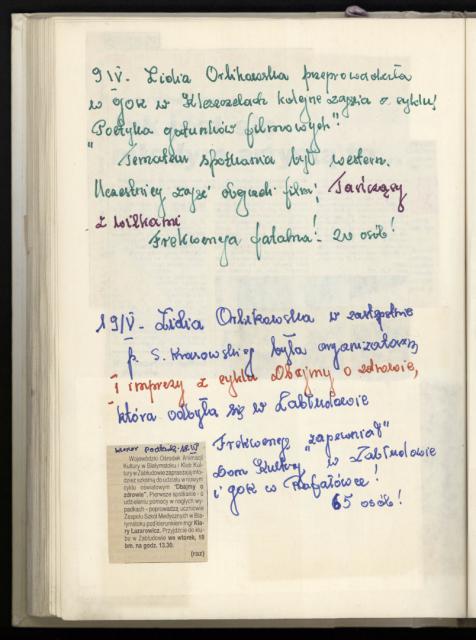 9/V. Lidia Orlikowska przeprowadziła
w GOK w Kleszczelach kolejne zajęcia z cyklu:
"Poetyka gatunków filmowych".
Tematem spotkania był western.
Uczestnicy zajęć obejrzeli film: Tańczący
z wilkami
Frekwencja fatalna! - 20 osób!
19/V - Lidia Orlikowska w zastępstwie
p. S. Krasowskiej była organizatorką
I imprezy z cyklu Dbajmy o zdrowie,
która odbyła się w Zabłudowie
Frekwencję "zapewniał"
Dom Kultury w Zabłudowie
i GOK w Rafałówce!
65 osób!
Kurier Podlaski
Wojewódzki Ośrodek Animacji
Kultury w Białymstoku i Klub Kul-
tury w Zabłudowie zapraszają mło-
dzież szkolną do udziału w nowym
cyklu oświatowym "Dbajmy o
zdrowie". Pierwsze spotkanie - o
udzielaniu pomocy w nagłych wy-
padkach - poprowadzą uczniowie
Zespołu Szkół Medycznych w Bia-
łymstoku pod kierunkiem mgr Kla-
ry Łazarowicz. Przyjdźcie do klu-
bu w Zabłudowie we wtorek, 19
bm. na godz. 13.30.
(raz)